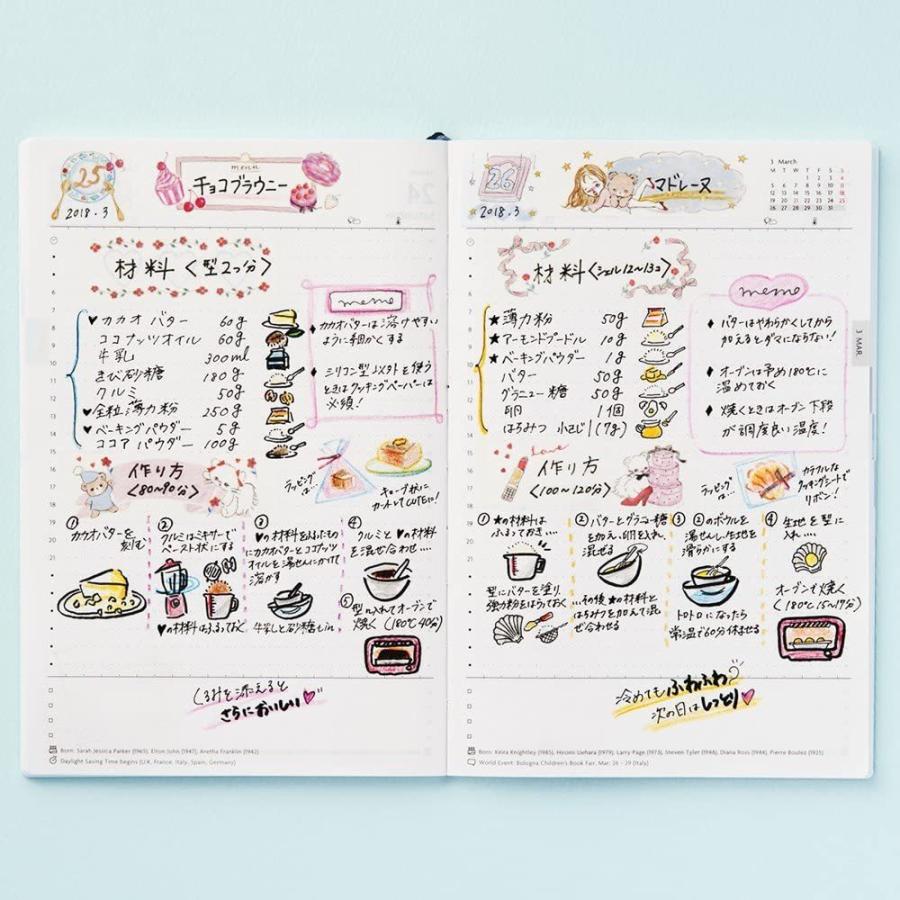 25
2018.3
menu
チョコブラウニー
材料〈型2つ分〉
♥カカオバター 60g
ココナッツオイル 60g
牛乳 300ml
きび砂糖 180g
クルミ 50g
♥全粒薄力粉 250g
♥ベーキングパウダー 5g
ココアパウダー 100g
memo
♦カカオバターは溶けやすい
ように細かくする
♦シリコン型以外を使う
ときはクッキングペーパーは
必須!
作り方
〈80〜90分〉
ラッピングは…
キューブ状に
カットしてCUTEに!
①
カカオバターを
刻む
②
クルミはミキサーで
ペースト状にする
♥の材料はふるっておく
③
♥の材料をふるったもの
にカカオバターとココナッツ
オイルを湯せんにかけて
溶かす
牛乳と砂糖もin
④
クルミと♥の材料
を混ぜ合わせ….
⑤
型の入れてオーブンで
焼く(180℃40分)
くるみを添えると
さらにおいしい♡
Born: Sarah Jessica Parker (1965), Elton John (1947), Aretha Franklin (1942)
Daylight Saving Time begins (U.K, France, Italy, Spain, Germany)
26
2018.3
マドレーヌ
3 March
M T W T F S S
1 2 3 4
5 6 7 8 9 10 11
12 13 14 15 16 17 18
19 20 21 22 23 24 25
26 27 28 29 30 31
3 MAR.
材料〈シェル12〜13コ〉
★薄力粉 50g
★アーモンドプードル 10g
★ベーキングパウダー 1g
バター 50g
グラニュー糖 50g
卵 1個
はちみつ 小さじ1(7g)
memo
♦バターはやわらかくしてから
加えるとダマにならない!
♦オーブンは予め180℃に
温めておく
♦焼くときはオーブン下段
が調度良い温度!
Love
作り方
〈100〜120分〉
ラッピングは…
カラフルな
クッキングシートで
リボン!
①★の材料は
ふるっておき….
型にバターを塗り、
強力粉をはらっておく
②バターとグラニュー糖
を加え、卵を入れ、
混ぜる
その後★の材料と
はちみつを加えて混
ぜ合わせる
③②のボウルを
湯せんし、生地を
滑らかにする
トロトロになったら
常温で60分休ませる
④生地を型に
入れ….
オーブンで焼く
(180℃15〜17分)
冷めてもふわふわ♡
次の日はしっとり♡
Born: Keira Knightley (1985), Hiromi Uehara (1979), Larry Page (1973), Steven Tyler (1948), Diana Ross (1944), Pierre Boulez (1925)
World Event: Bologna Children's Book Fair, Mar. 26 - 29 (Italy)